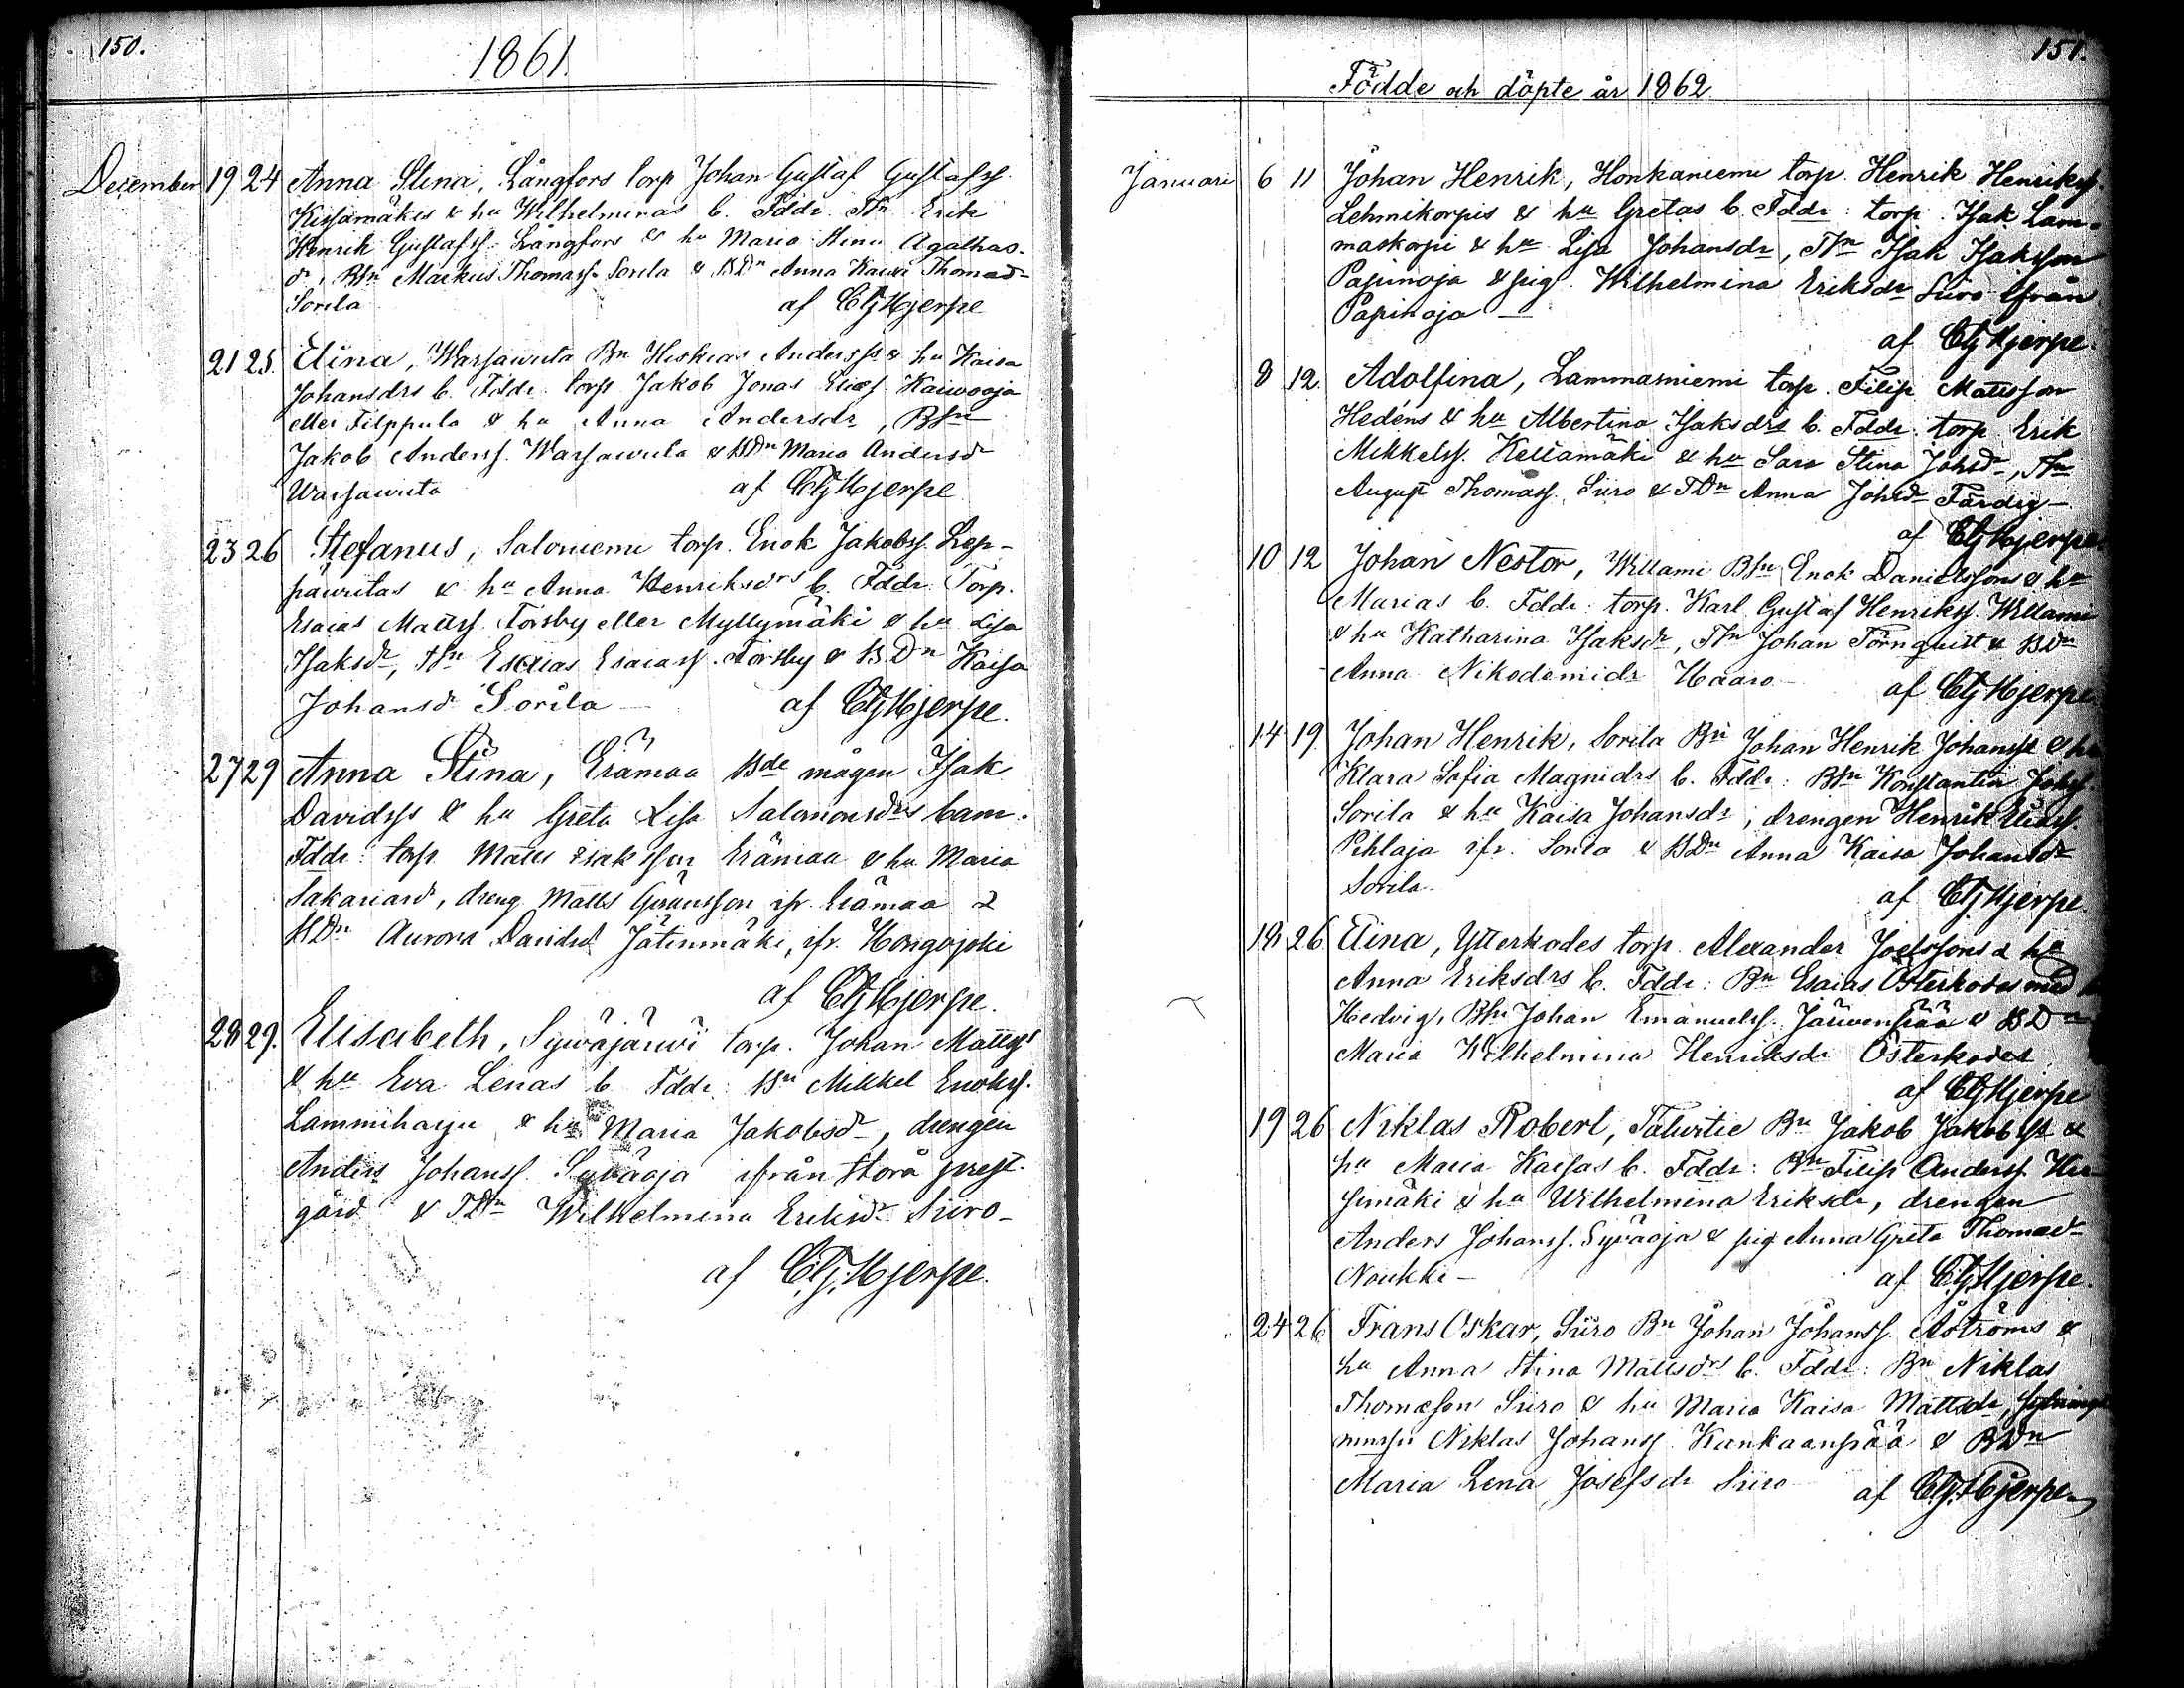 150.
1861.
December 19 24 Anna Stina, Långfors torp Johan Gustaf Gustafss.
Kissamäkis & hu Wilhelminas b. Fddr. Tn Erik
Henrik Gustafss. Långfors & hu Maria Stina Agathas-
dr, Bsn Markus Thomass. Sorila & BDn Anna Kaisa Thomasdr
Sorila af CGHjerpe
21 25. Elina, Warsawuta Bn Heskias Anderss. & hu Kaisa
Johansdrs b. Fddr. torp Jakob Jonas Eliass. Kaiwooja
eller Filppula & hu Anna Andersdr, Bsn
Jakob Anderss. Warsawuta & BDn Maria Andersdr
Warsawuta af CGHjerpe
23 26 Stefanus, Saloniemi torp. Enok Jakobss. Lep-
päuritas & hu Anna Henriksdrs b. Fddr. Torp.
Esaias Mattss. Torsby eller Myllymäki & hu Lisa
Isaksdr, Tsn Esaias Esaiass. Torsby & BDn Kaisa
Johansdr Sorila af CGHjerpe.
27 29 Anna Stina, Erämaa Bde mågen Isak
Davidss & hu Greta Lisa Salomonsdrs barn.
Fddr: torp. Matts Isaksson Erämaa & hu Maria
Sakariasdr, dreng Matts Göransson ifr. Erämaa &
BDn Aurora Davidsd Jätinmäki, ifr. Hongojoki
af CGHjerpe.
28 29. Elisabeth, Sywäjärwi torp. Johan Mattss
& hu Eva Lenas b. Fddr. Bn Mikkel Enokss.
Lammiharju & hu Maria Jakobsdr, drengen
Anders Johanss. Sywäoja ifrån Storå prest-
gård & TDn Wilhelmina Eriksdr Siiro-
af CGHjerpe.
151.
Födde och döpte år 1862
Januari 6 11 Johan Henrik, Honkaniemi torp. Henrik Henrikss.
Lehmikorpis & hu Gretas b. Fddr: torp. Isak Lam-
maskorpi & hu Lisa Johansdr, Tsn Isak Isaksson
Papinoja & pig. Wilhelmina Eriksdr Siiro ifrån
Papinoja
af CGHjerpe.
8 12. Adolfina, Lammasniemi torp. Filip Mattsson
Hedéns & hu Albertina Isaksdrs b. Fddr. torp Erik
Mikkelss. Keitämäki & hu Sara Stina Johsdr, Tsn
August Thomass. Siiro & TDn Anna Johsdr Färdig-
af CGHjerpe.
10 12 Johan Nestor, Willami Bsn Enok Danielssons & hu
Marias b. Fddr: torp. Karl Gustaf Henrikss. Willami
& hu Katharina Isaksdr, Tsn Johan Törnquist & BDn
Anna Nikodemidr Haaro- af CGHjerpe
14 19. Johan Henrik, Sorila Bn Johan Henrik Johanss & hu
Klara Sofia Magnidrs b. Fddr: Bsn Konstantin Johss.
Sorila & hu Kaisa Johansdr, drengen Henrik Eliass.
Pihlaja ifr. Sorila & BDn Anna Kaisa Johansdr
Sorila. af CGHjerpe.
18 26 Elina, Ytterkodes torp. Alexander Joelssons & hu
Anna Eriksdrs b. Fddr: Bn Esaias Österkodes med
Hedvig, Bsn Johan Emanuelss. Järwenpää & BDn
Maria Wilhelmina Henriksdr Österkodes
af CGHjerpe
19 26 Niklas Robert, Taluitie Bn Jakob Jakobss &
hu Maria Kaisas b. Fddr: Bn Filip Anderss.
& hu Wilhelmina Eriksdr, drengen
Anders Johanss. Sywäoja & pig Anna Greta Thomasdr
Noukki- af CGHjerpe.
24 26 Frans Oskar, Siiro Bn Johan Johanss. Åströms &
hu Anna Stina Mattsdrs b. Fddr: Bn Niklas
Thomasson Siiro & hu Maria Kaisa Mattsdr,
Niklas Johanss. Kankaanpää & BDn
Maria Lena Josefsdr Siiro af CGHjerpe